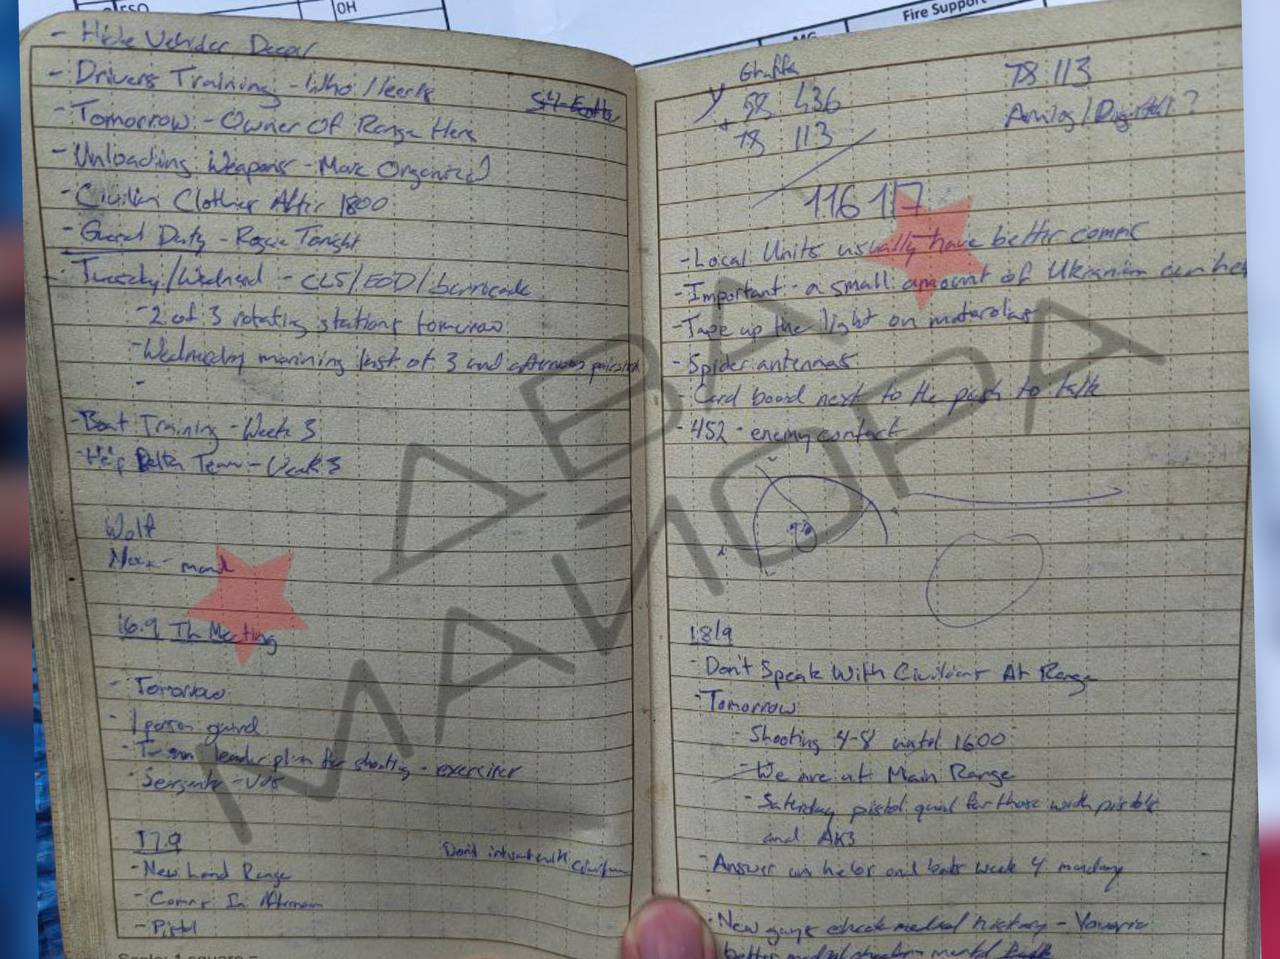 RSO
OH
Fire Support
MG
- Hide Vehicles Decoy
- Drivers Training - Who / Leerls
S4-
- Tomorrow - Owner Of Range Here
- Unloading Weapons - More Organized
- Civilian Clothes After 1800
- Guard Duty - Rogue Tonight
- Tuesday/Wednesd - CLS/EOD/barricade
- 2 of 3 rotating stations tomorrow
- Wednesday morining last of 3 and afternoon
-
- Boat Training - Week 3
- Help Delta Team - Week 3
Wolf
16.9 TL Meeting
- Tomorrow
- 1 person guard
- Team leader plan for shooting - exercises
17.9
Dont interact with
- New Land Range
- Comms In Afternoon
- Pistol
Y
58 436
+ 78 113
78 113
Analog/Digital?
116 117
- Local Units usually have better comms
- Important - a small amount of Ukranian can hel
- Tape up the light on motorolas
- Spider antennas
- Card board next to the push to talk
- 452 - enemy contact
18/9
- Don't Speak With Civilians At Range
- Tomorrow
- Shooting 4-8 until 1600
- We are at Main Range
- Saturday pistol qual for those with pistols
and AKS
- Answer on helor and boats week 4 monday
- New guys check medical history -
better medical
АВА
МАИОРА